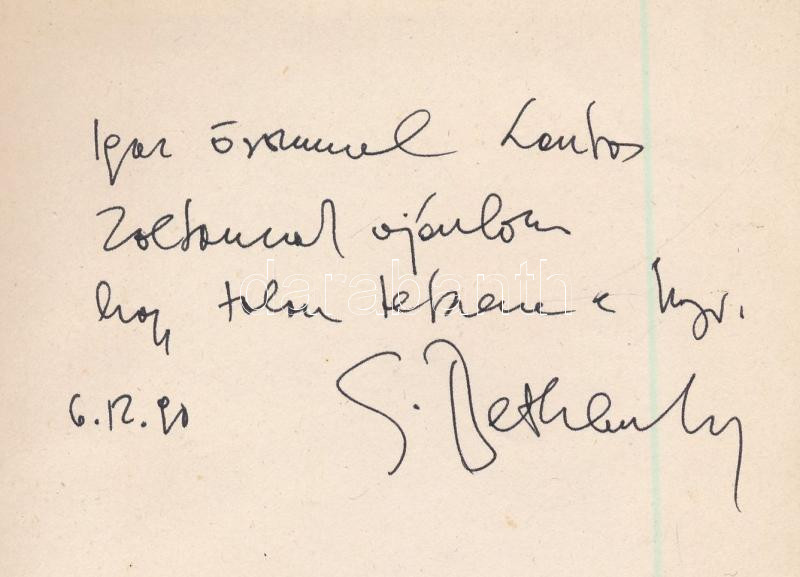 Igaz örömmel Lantos
Zoltannak ajánlom
hogy talan tetszene a
6.12.90
G. Bethlendy
darabanth